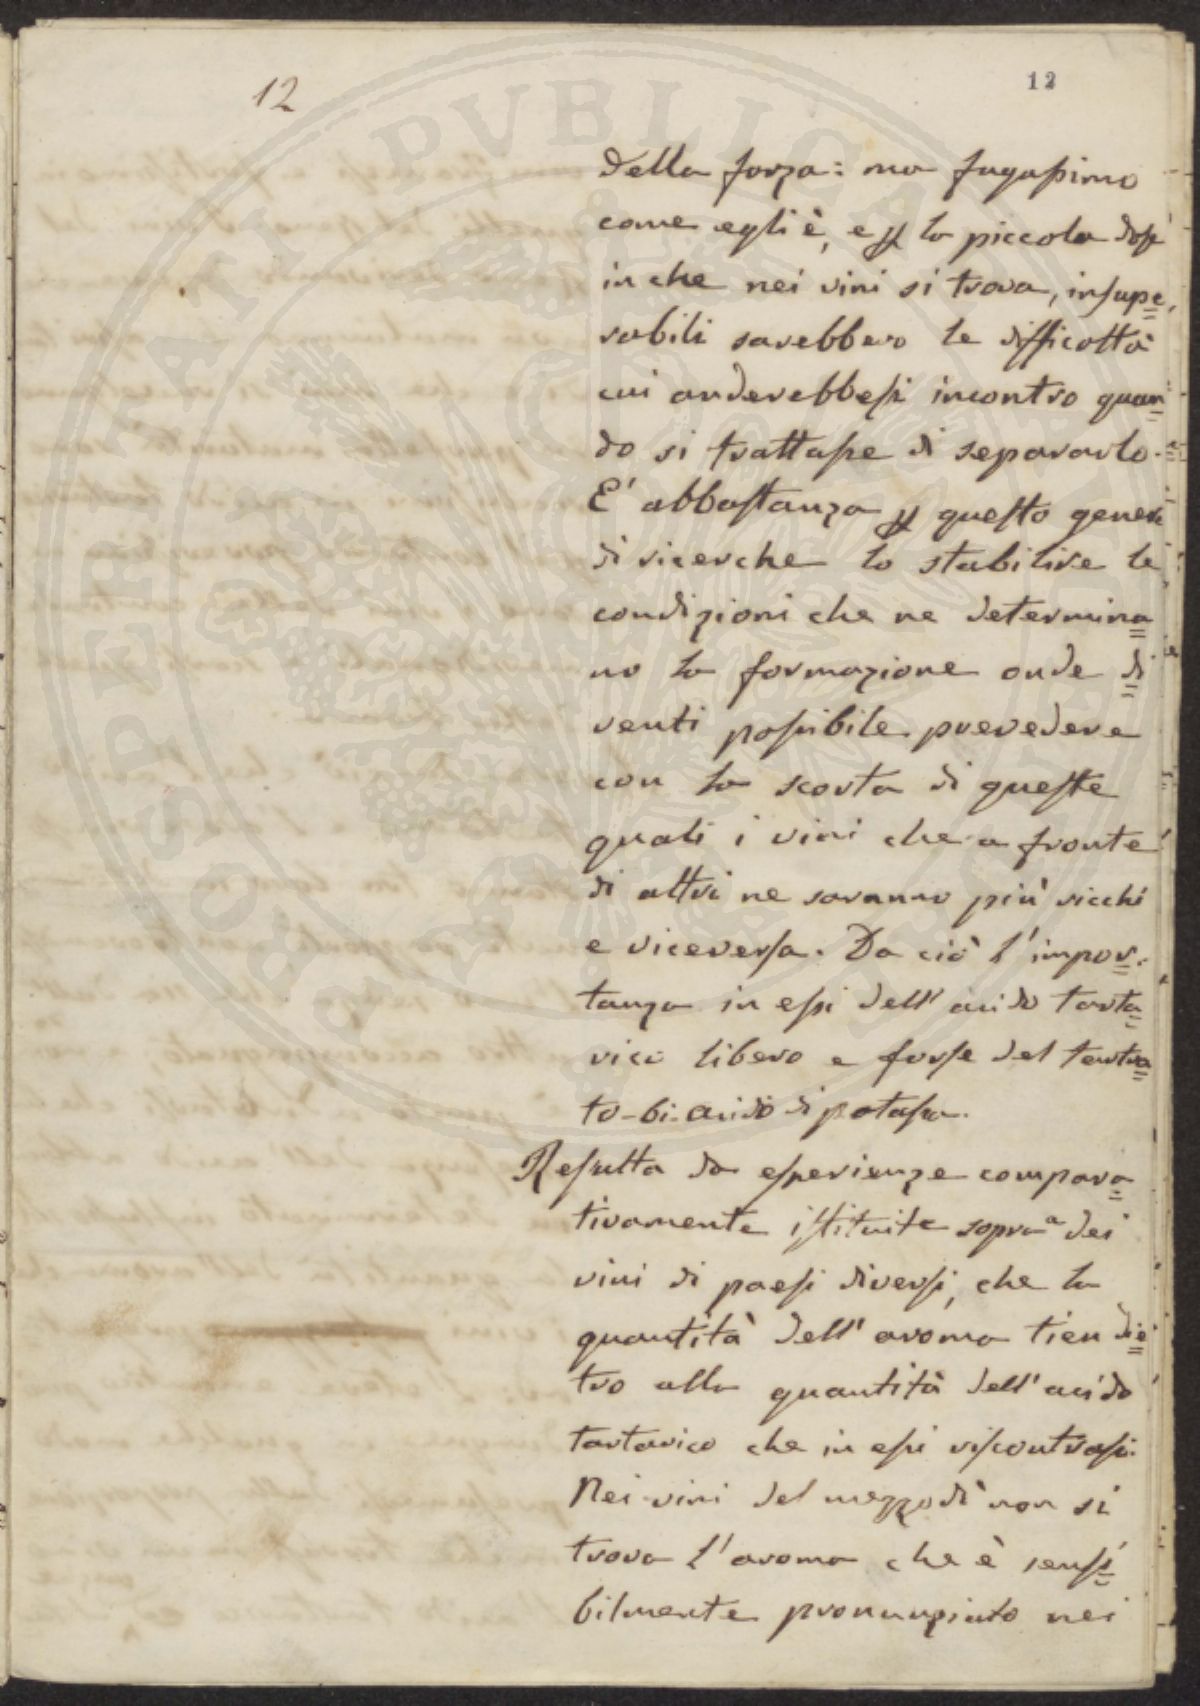 12
12
della forza: ma fugassimo
come egli è, e p la piccola dose
in che nei vini si trova, insupe,
rabili sarebbero le difficoltà
cui anderebbesi incontro quan
do si trattasse di separarlo.
E' abbastanza p questo genere
di ricerche lo stabilire le
condizioni che ne determina
no la formazione onde di
venti possibile prevedere
con la scorta di queste
quali i vini che a fronte
di altri ne saranno più ricchi
e viceversa. Da ciò l'impor.
tanza in essi dell'acido tarta
rico libero e forse del tartra
to-bi-acido di potassa.
Resulta da esperienze compara
tivamente istituite sopra dei
vini di paesi diversi, che la
quantità dell'aroma tien die
tro alla quantità dell'acido
tartarico che in essi riscontrasi.
Nei vini del mezzodì non si
trova l'aroma che è sensi
bilmente pronunziato nei
PROSPERITATI PVBLICAE